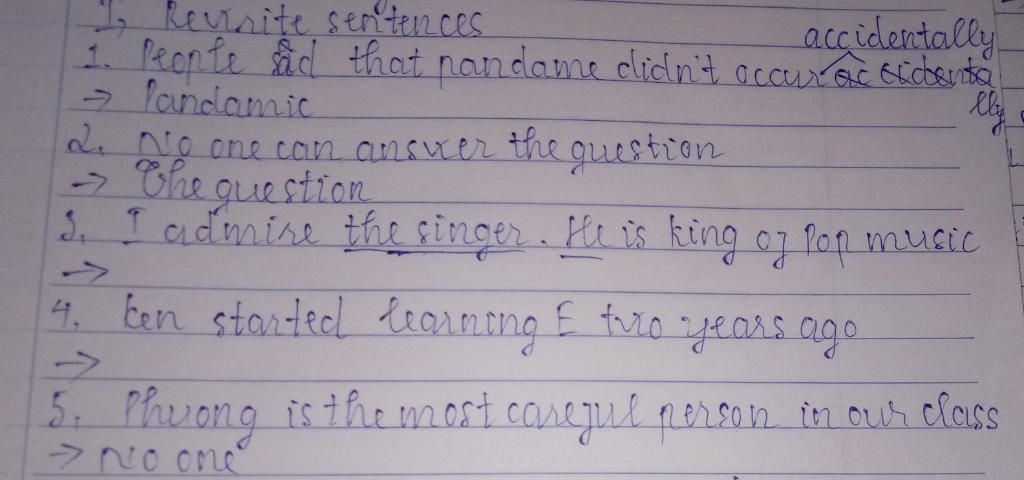 I, Rewrite sentences
accidentally
1. People said that pandame didn't occur
→ Pandamic
2. No one can answer the question
→ The question
3. I admire the singer. He is king of Pop music
→
4. Ken started learning E two years ago
→
5. Phuong is the most careful person in our class
→ No one